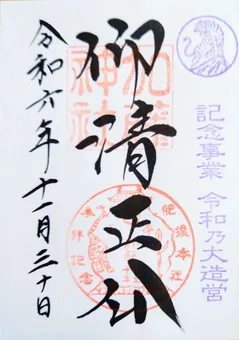 記念事業 令和乃大造営
仰清正公
加藤
神社
肥後本社
拝記念
令和六年十一月三十日